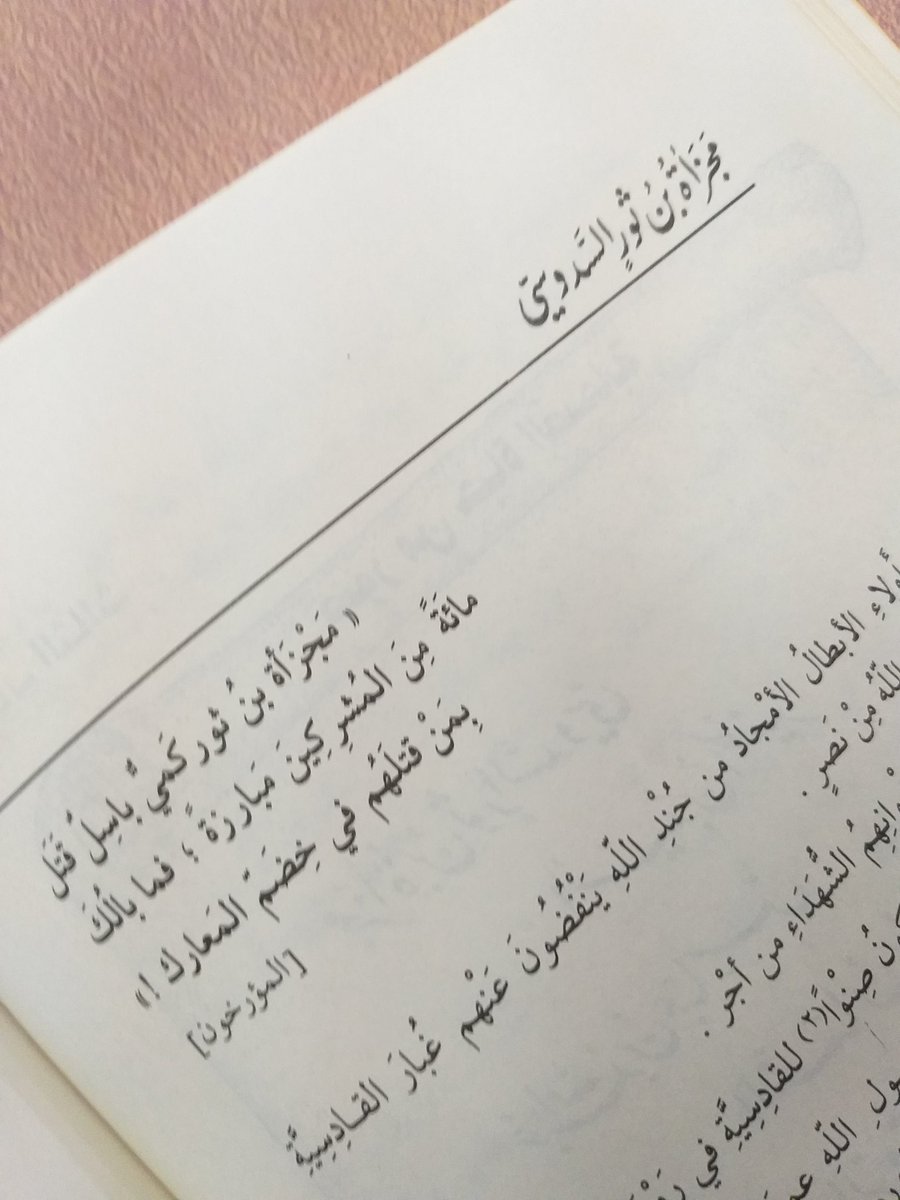 مَجْزَأَةُ بْنُ ثَوْرٍ السَّدُوسِيّ
« مَجْزَأَة بنُ ثور كَمِيٌّ باسِلٌ قُتَل
مائَةً مِنَ المُشرِكينَ مَبارزةً ؛ فما بالُكَ
بِمَنْ قتلَهُم في خِضَمّ المَعارك !»
[المؤرخون]
الأبطالُ الأمْجادُ من جُنْدِ اللّهِ يَنْفُضُونَ عَنْهم غُبارَ القادِسِيَّةِ
اللّهُ مِنْ نَصَرٍ .
الشُّهَداءِ من أجْر .
صِنْواً(٢) للقادِسِيَّةِ في
اللّهِ